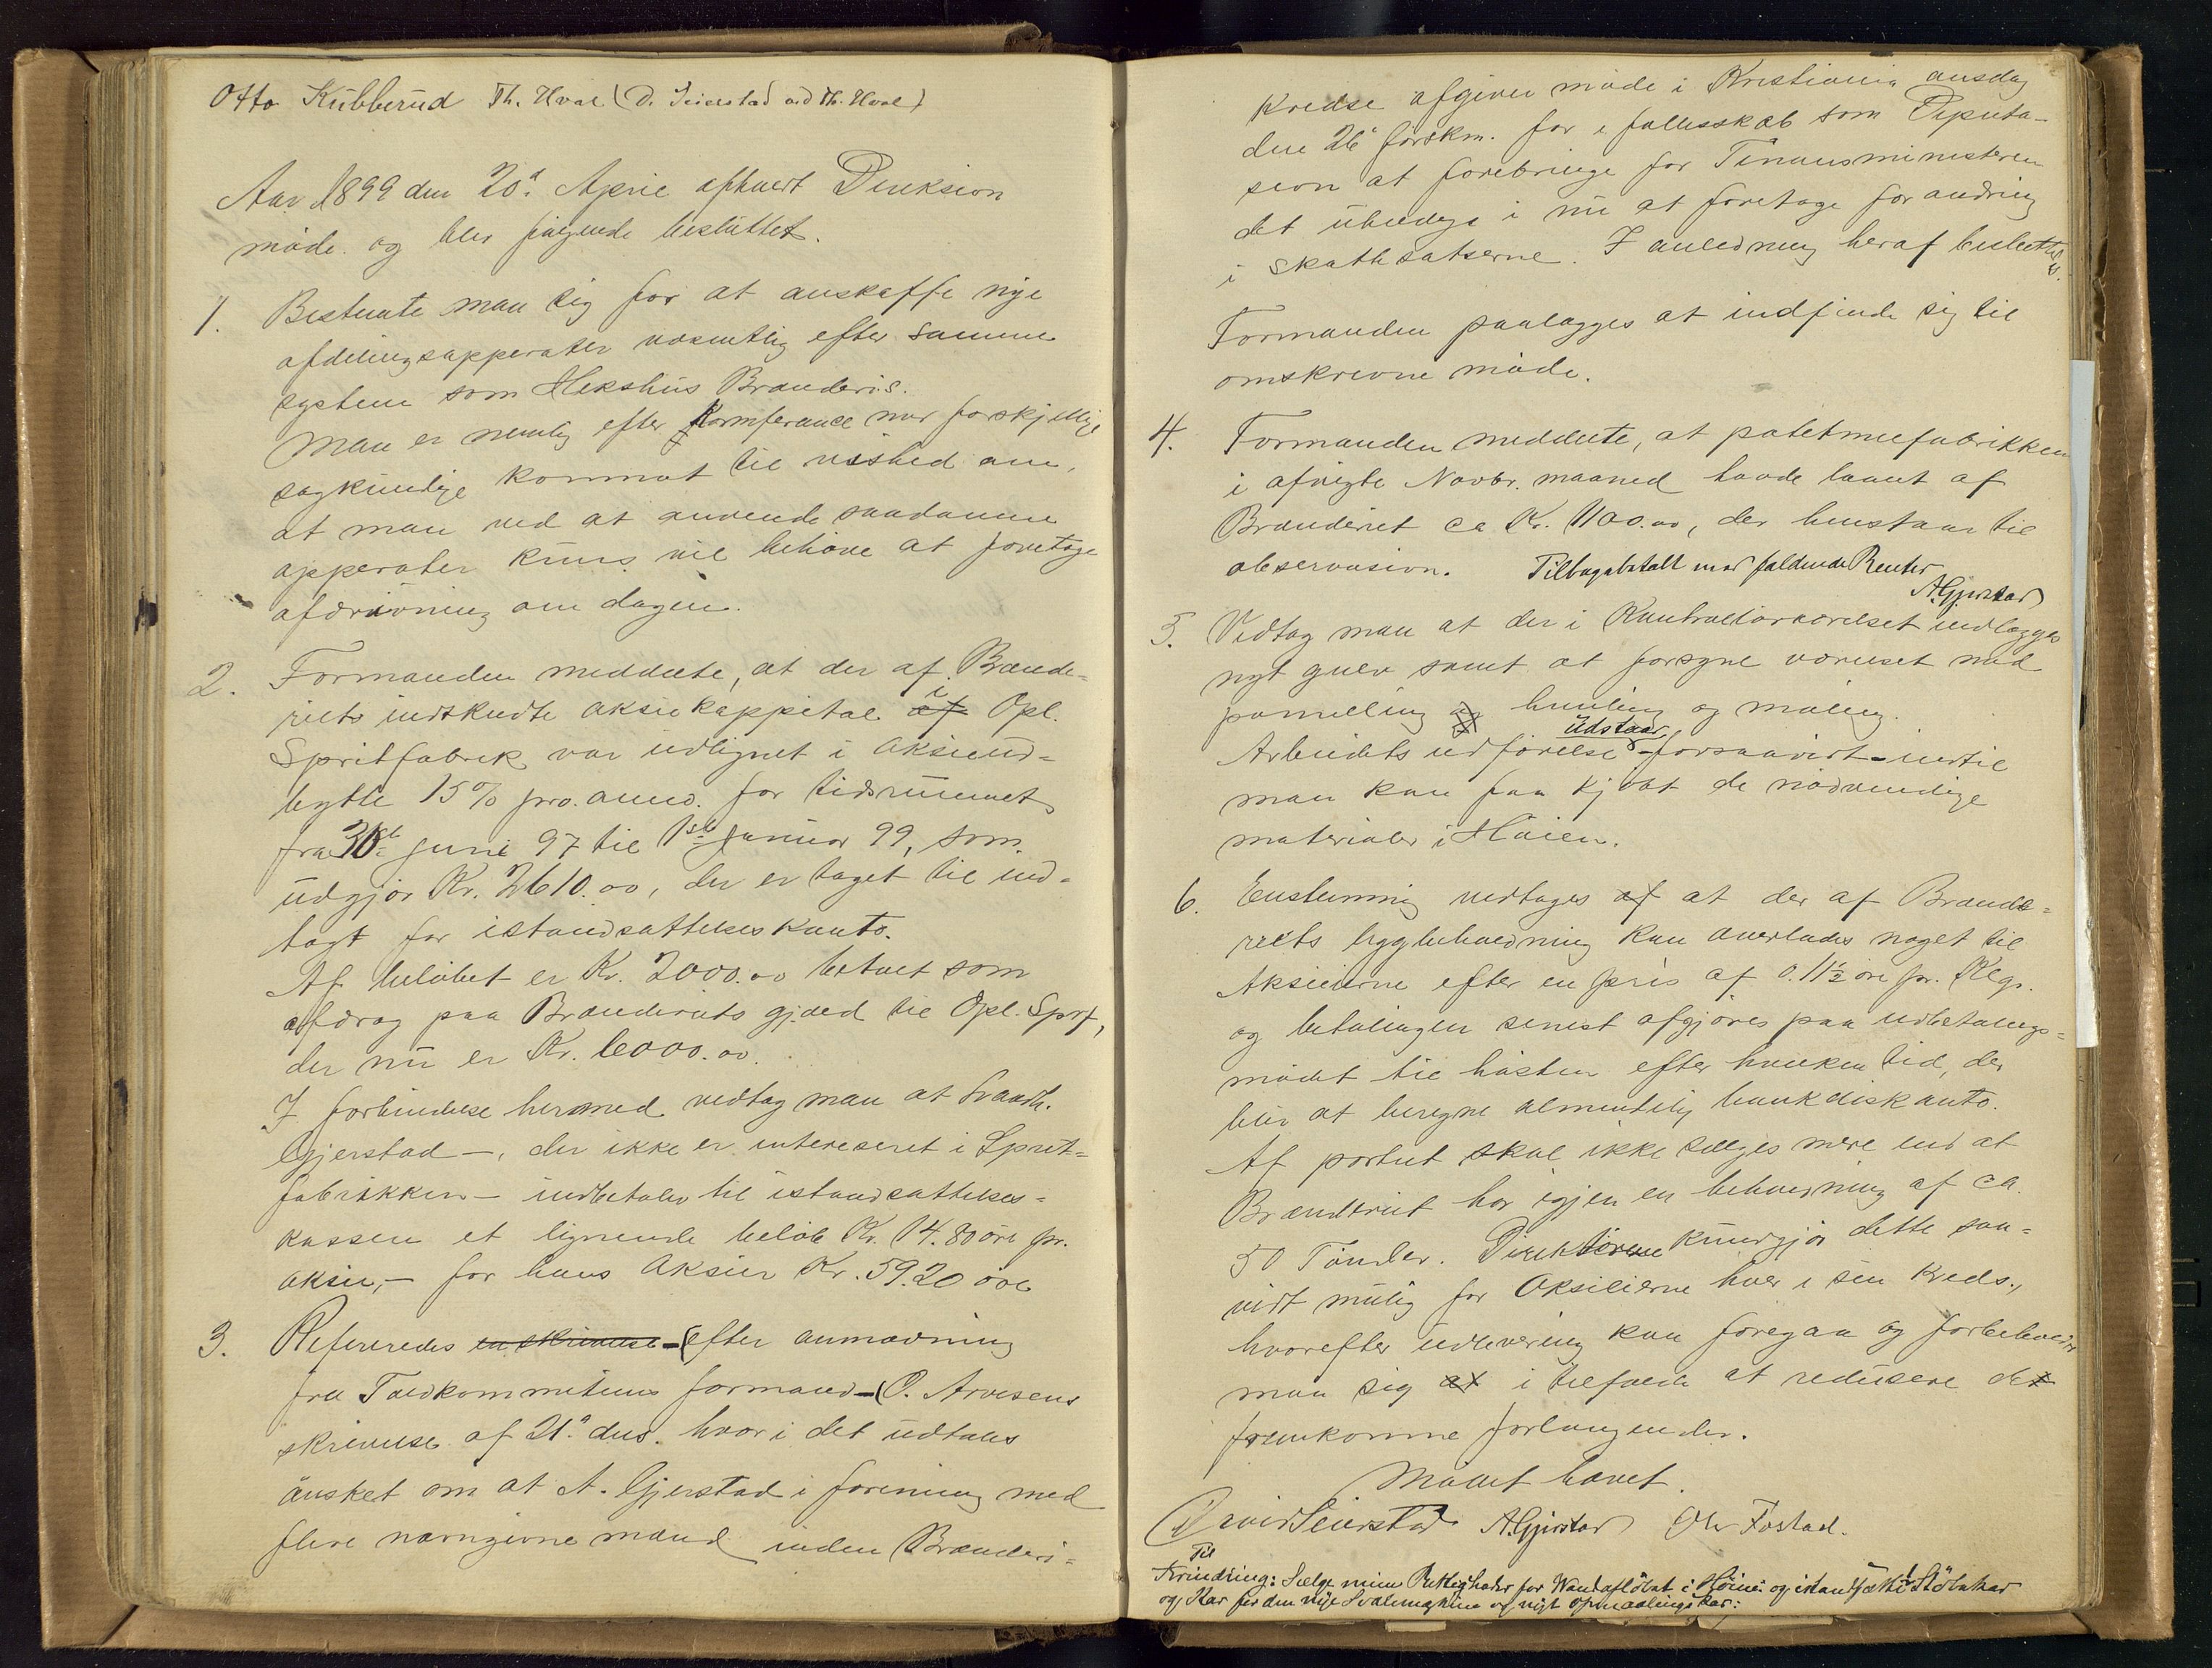 Otto Kübberüd Th. Hval (D. Seierstad ved Th. Hval)
Aar 1899 den 20d. April afholdt Direksion
möde og blev følgende besluttet.
1. Bestemte man sig for at anskaffe nye
afdelingsapperater væsentlig efter samme
system som Hekshus Brænderis.
Man er nemlig efter Komferance med forskjellige
sagkundige kommet til visshed om,
at man ved at anvende saadanne
apperater kuns vil behöve at foretage
afdrivning om dagen.
2. Formanden meddelte, at der af Brænde-
riets indskudte aksiekappital i Opl.
Spritfabrik var udlignet i aksieud-
bytte 15% pro. anno. for tidsrummet
fra 30te Juni 97 til 1ste Januar 99, som
udgjör Kr. 2610.00, der er taget til ind-
tægt for istandsættelseskonto.
Af belöbet er Kr. 2000.00 betalt som
afdrag paa Brænderiets gjæld til Opl. Sprf,
der nu er Kr. 6000.00.
I forbindelse hermed vedtog man at Landh.
Gjerstad -, der ikke er intereseret i Sprit-
fabrikken - indbetaler til istandsættelses-
kassen et lignende belöb Kr. 14.80 öre pr.
aksie, - for hans Aksier Kr. 59.20 öre
3. Refereredes en skrivelse - (efter anmodning
fra Toldkommiteens formand - (O. Arvesens
skrivelse af 21d. dns. hvori det udtales
önsket om at A. Gjerstad i forening med
flere navngivne mænd inden Brænderi-
kredse afgiver möde i Kristiania onsdag
den 26d förstkm. for i fællesskab som Deputa-
sion at forebringe for Finansministeren
det uheldige i nu at foretage forandring
i skattesatserne. I anledning heraf besluttedes.
Formanden paalægges at indfinde sig til
omskrevne möde.
4. Formanden meddelte, at potetmelfabrikken
i afvigte Novbr. maaned havde laant af
Brænderiet ca Kr. 1100.00, der henstaar til
observasion. Tilbagebetalt med faldende Renter
A.Gjerstad
5. Vedtog man at der i Kontrollörværelset indlægges
nyt gulv samt at forsyne værelset med
pannelling og hvidling og maling.
Arbeidets udförelse udstaar forsaavidt indtil
man kan faa kjöbt de nödvendige
materialer i Höien.
6. Enstemmig vedtages af at der af Brænde-
riets bygbeholdning kan overlades noget til
Aksieierne efter en pris af 0.11½ öre pr. Klgr.
og betalingen senest afgjöres paa udbetalings-
mödet til hösten efter hvilken tid, der
blir at beregne almentlig bankdiskonto.
Af partiet skal ikke sælges mere end at
Brænderiet har igjen en beholdning af ca.
50 Tönder. Direktörene kundgjör dette saa-
vidt mulig for Aksieierne hver i sin Kreds.,
hvorefter udlevering kan foregaa og forbeholder
man sig at i tilfælde at redusere det
fremkomne forlangender.
Mödet hævet.
David Seierstad A.Gjerstad Ole Fostad.
Til
Erindring: Sælge mine Rettigheder for Vandaflöbet i Höine og istandsætte Stöbekar
og Kar for den nye Svalemaskine og nyt opmaalingskar: